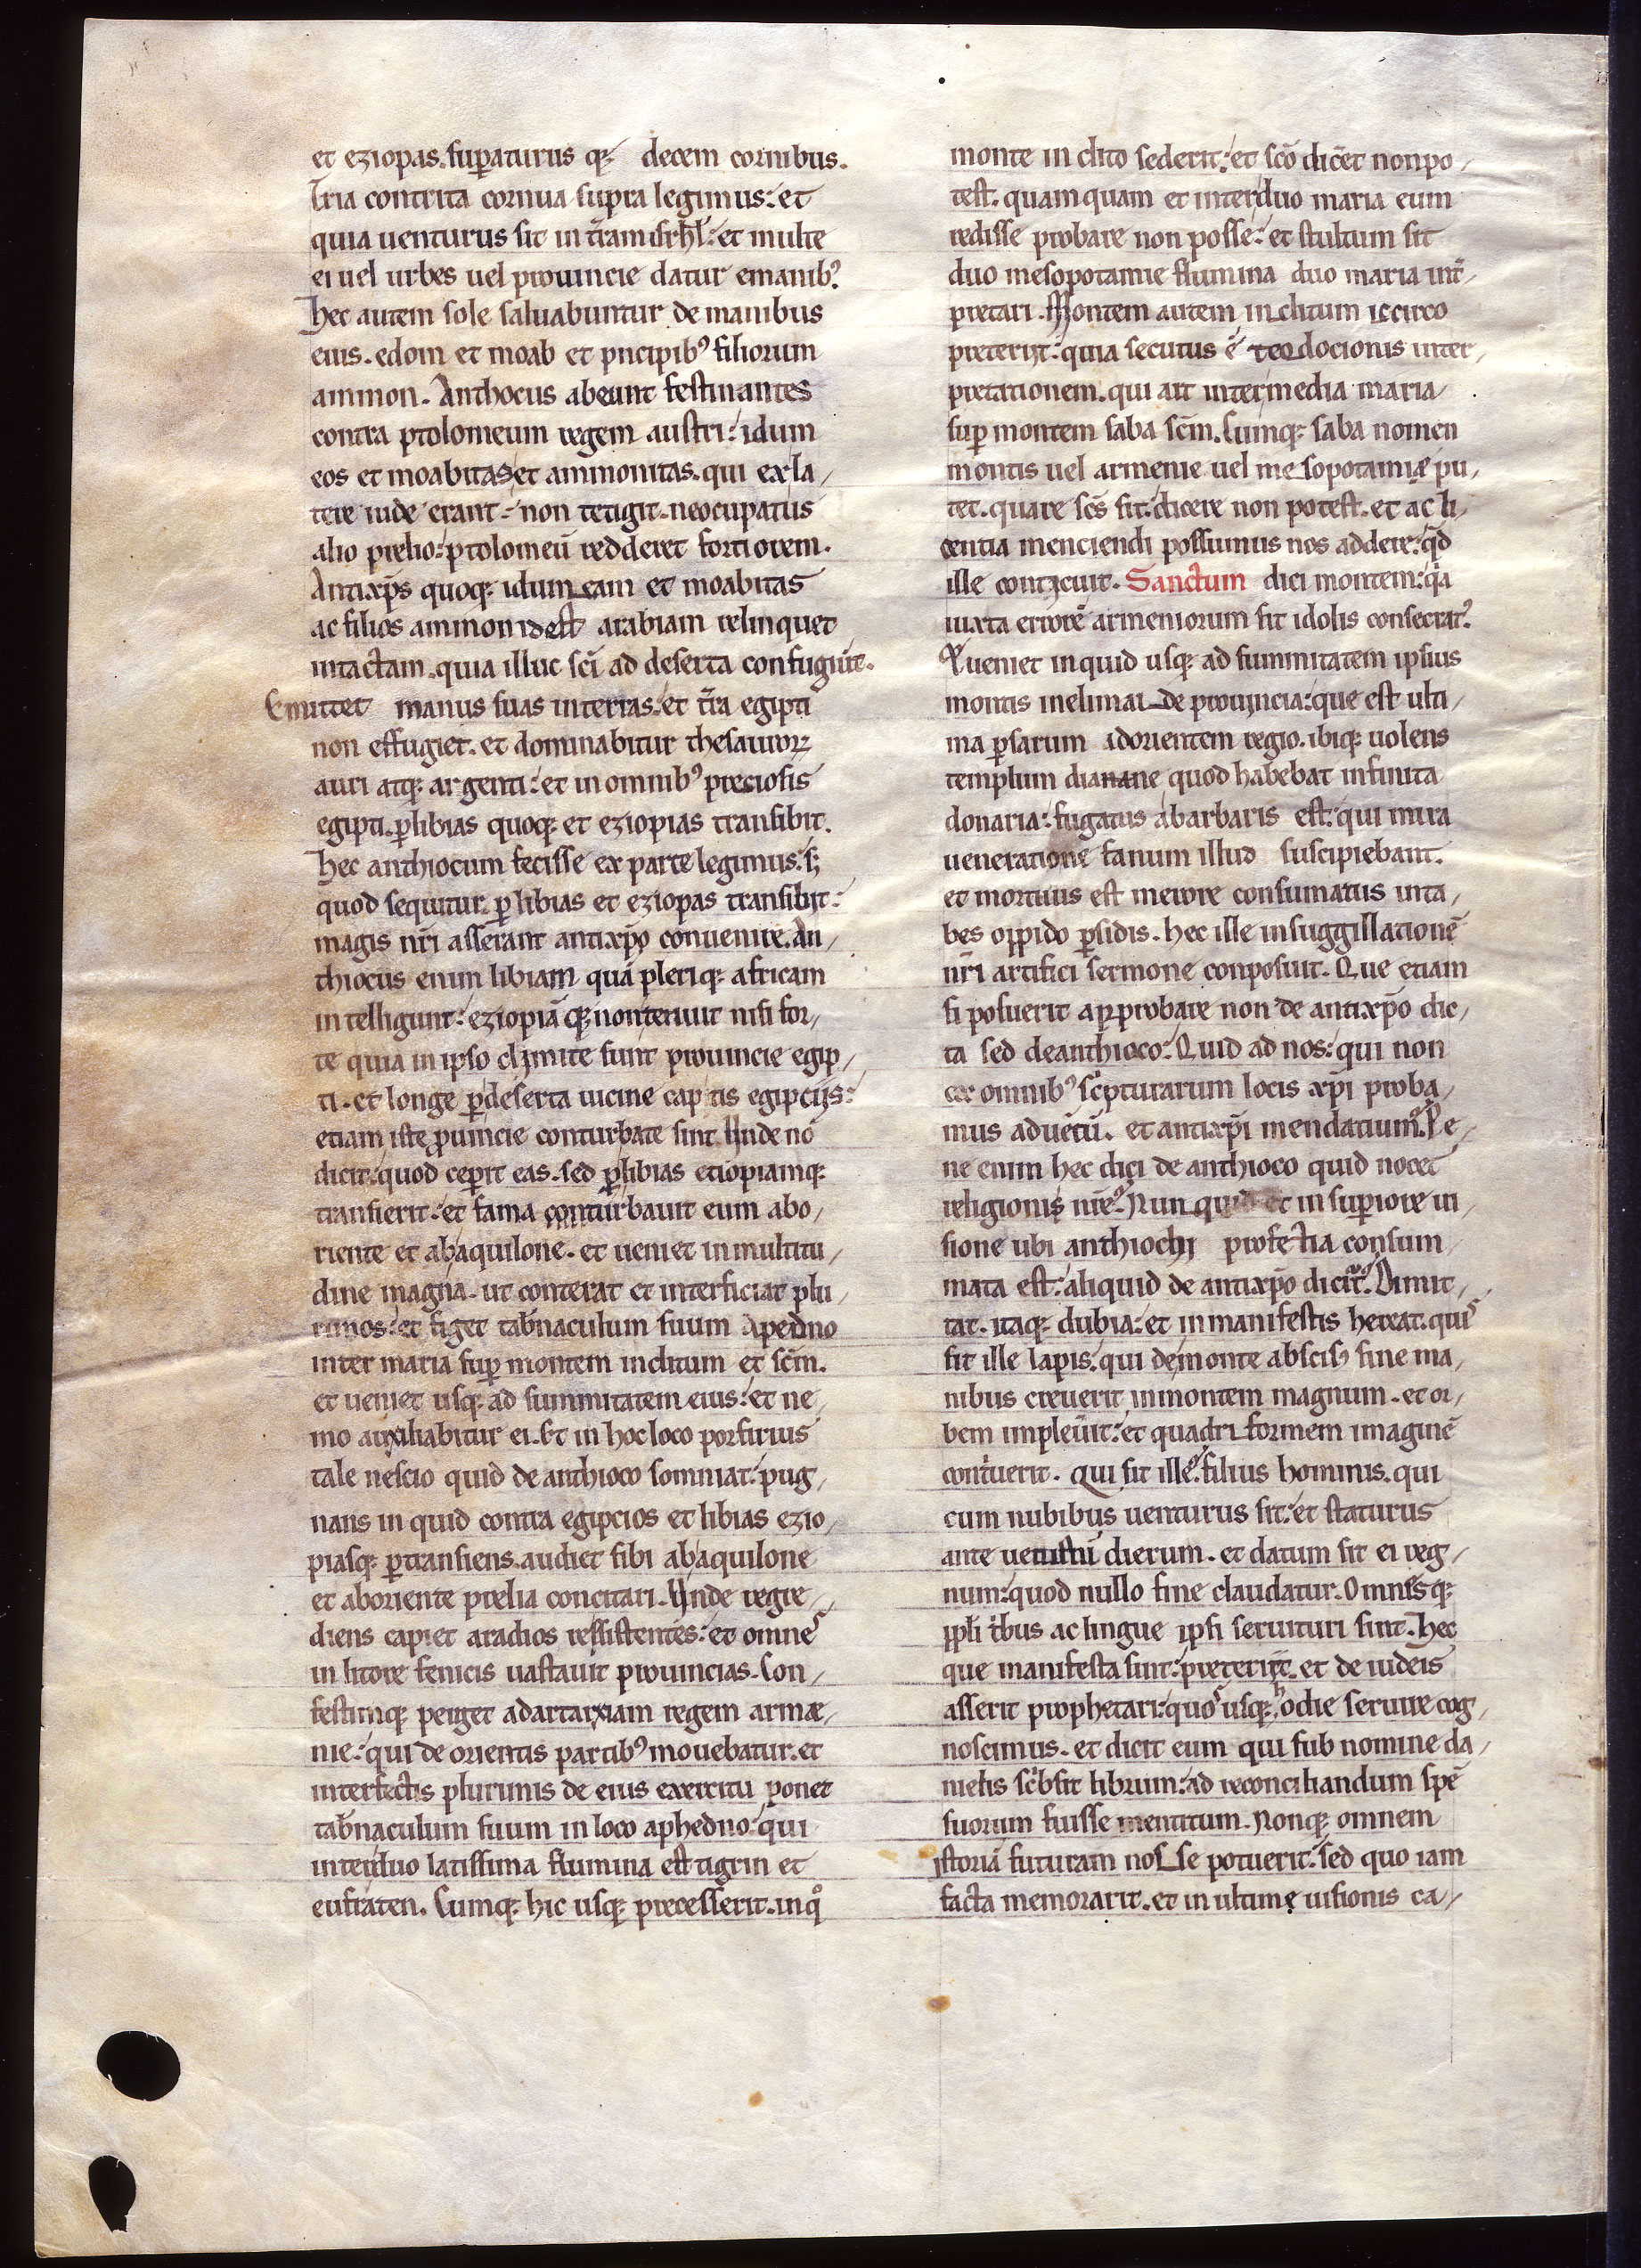 et eziopas. supaturus q; decem cornibus.
tria contrita cornua supra legimus: et
quia uenturus sit in t̄ram isrl̄: et multe
ei uel urbes uel prouincie datur emanibꝰ
Hec autem sole saluabuntur de manibus
eius. edom et moab et pncipibꝰ filiorum
ammon. Anthocus abeunt festinantes
contra ptolomeum regem austri: idum
eos et moabitas et ammonitas. qui ex la/
tere iude erant: non tetigit. neocupatus
alio prelio: ptolomeū redderet fortiorem.
Antixp̄s quoq; idumeam et moabitas
ac filios ammon idest arabiam relinquet
intactam. quia illuc sc̄i ad deserta confugiūt.
Emittet manus suas interras: et t̄ra egipti
non effugiet. et dominabitur thesauroꝝ
auri atq; argenti: et in omnibꝰ preciosis
egipti. ꝑlibias quoq; et eziopias transibit.
hec anthiocum fecisse ex parte legimus: sꝫ
quod sequitur. ꝑ libias et eziopas transibit:
magis nr̄i asserant antixp̄o conuenire. An/
thiocus enim libiam quā pleriq; africam
intelligunt: eziopiā q; non tenuit nisi for/
te quia in ipso climite sunt prouincie egip/
ti. et longe ꝑ deserta uicine captis egipciis:
etiam iste ꝓuincie conturbate sint. Unde nō
dicit: quod ceperit eas. sed ꝑ libias etiopiamq;
transierit: et fama conturbauit eum abo/
riente et abaquilone. et ueniet in multitu/
dine magna. ut conterat et interficiat plu/
rimos: et figet tab̄naculum suum apedno
inter maria suꝑ montem inclitum et sc̄m.
et ueniet usq; ad summitatem eius: et ne/
mo auxiliabitur ei. Et in hoc loco porfirius
tale nescio quid de anthioco somniat: pug/
nans in quid contra egipcios et libias ezio/
piasq; ꝑtransiens. audiet sibi abaquilone
et aboriente prelia concitari. Unde regre/
diens capiet aradios resistentes: et omnes
in litore fenicis uastauit prouincias. Con/
festimq; perget adartarxiam regem armæ/
nie: qui de orientis partibꝰ mouebatur. et
interfectis plurimis de eius exercitu ponet
tab̄naculum suum in loco aphedno: qui
inter duo latissima flumina est tigrin et
eufraten. Cumq; hic usq; precesserit. inqͦ
monte in clito sederit: et sc̄o dicet nonpo/
test. quamquam et inter duo maria eum
sedisse probare non posse: et stultum sit
duo mesopotamie flumina duo maria int̄/
pretari. Montem autem inclitum iccirco
preteriit: quia secutus ē teodocionis inter/
pretationem. qui ait inter media maria/
suꝑ montem saba sc̄m. Cumq; saba nomen
montis uel armenie uel mesopotamiæ pu/
tet. quare sc̄s sit: dicere non potest. et ac li/
centia menciendi possumus nos addere: qd̄
ille conticuit. Sanctum dici montem: qa
iuxta errorē armeniorum sit idolis consecratꝰ.
Et ueniet inquid usq; ad summitatem ipsius
montis inelimai de prouincia: que est ulti/
ma ꝑsarum adorientem regio. ibiq; uolens
templum dianane quod habebat infinita
donaria: fugatus abarbaris est: qui mira
ueneratione fanum illud suscipiebant.
et mortuus est merore consumatus inta/
bes oppido ꝑsidis. hec ille insuggillationē
nr̄i artifici sermone conposuit. Que etiam
si potuerit approbare non de antixp̄o dic/
ta sed de anthioco: Quid ad nos: qui non
ex omnibꝰ scripturarum locis xp̄i proba/
mus aduētū. et antixp̄i mendatium? Po
ne enim hec dici de anthioco quid nocet
religionis nr̄e? Nun quid et in suꝑiore ui/
sione ubi anthiochi profetia consum/
mata est: aliquid de antixp̄o dicit̄? Dimit/
tat. itaq; dubia: et in manifestis hereat. quis
sit ille lapis: qui de monte abscisꝰ sine ma/
nibus creuerit in montem magnum. et or/
bem impleuit: et quadri formem imaginē
contriuerit. Qui sit ille? filius hominis. qui
cum nubibus uenturus sit: et staturus
ante uetustū dierum. et datum sit ei reg/
num: quod nullo fine claudatur. Omnesq;
ppli t̄bus ac lingue ipsi seruituri sint. Hec
que manifesta sunt: preteriit. et de iudeis
asserit prophetari: quos usq; hodie seruire cog/
noscimus. et dicit eum qui sub nomine da/
nielis scribsit librum: ad reconciliandum spē
suorum fuisse mentitum. Nonq; omnem
istoriā futuram nosse potuerit: sed quo iam
facta memorarit. et in ultime uisionis ca/